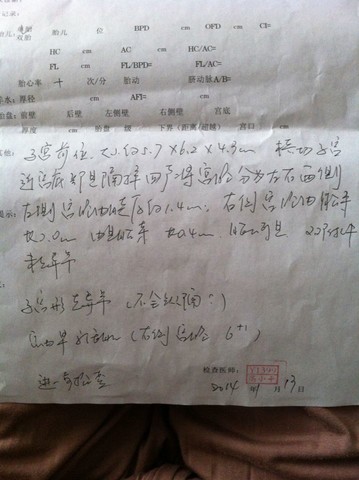 胎儿 位 BPD cm OFD cm CI=
HC cm AC cm HC/AC=
FL cm FL/BPD= FL/AC=
胎心率 + 次/分 胎动 脐动脉A/B=
羊水:厚径 cm AFI= cm
胎盘:前壁 后壁 左侧壁 右侧壁 宫底
厚度 cm 胎盘 级 下界(距离/超越) 宫口 cm
子宫前位 大小约5.7×6.2×4.3cm 横切子宫
近宫底部见隔样回声将宫腔分为左右两侧
左侧宫腔内膜厚约1.4cm 右侧宫腔内见孕
囊2.0cm 内见胚芽 长0.4cm 胎心可见 双附件
未见异常
子宫形态异常(不全纵隔?)
宫内早孕 (右侧宫腔 6+1)
进一步检查
检查医师:
2014 年 月 13日